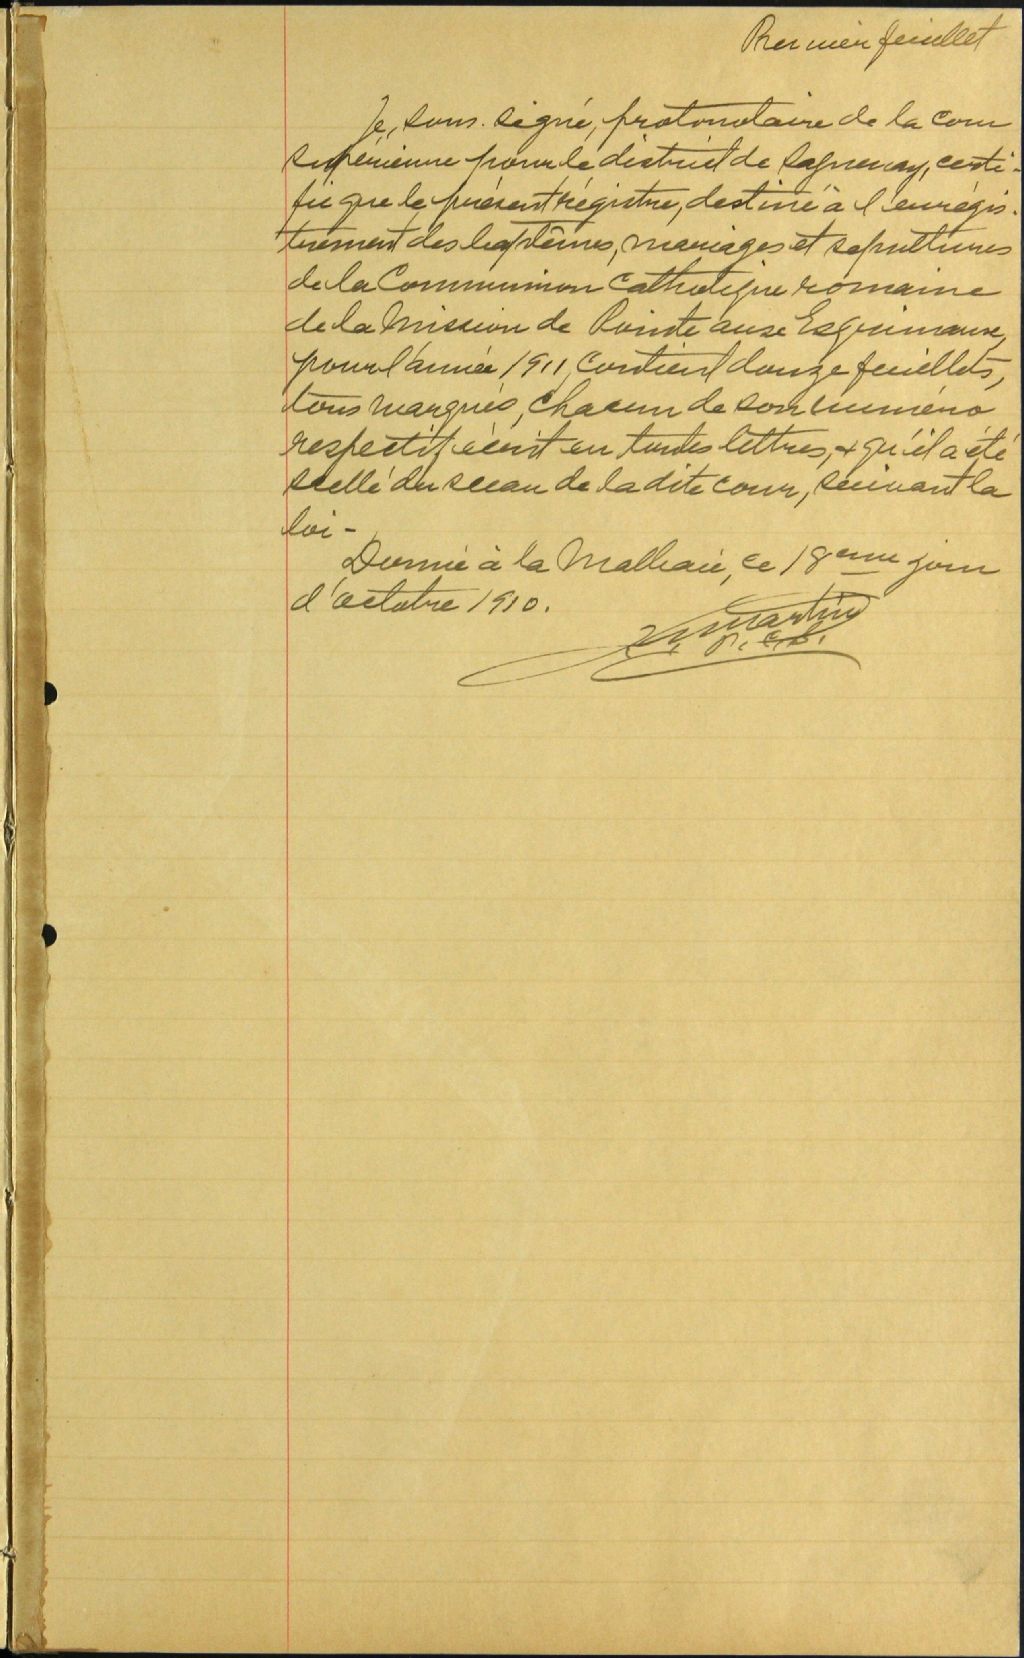 Premier feuillet
Je, sous-signé, protonotaire de la cour
supérieure pour le district de Saguenay, certi-
fie que le présent régistre, destiné à l'enrégis-
trement des baptêmes, mariages et sépultures
de la Communion Catholique romaine
de la Mission de Pointe aux Esquimaux,
pour l'année 1911, contient douze feuillets,
tous marqués, chacun de son numéro
respectif écrit en toutes lettres, & qu'il a été
scellé du sceau de la dite cour, suivant la
loi -
Donné à la Malbaie, ce 18eme jour
d'octobre 1910.
Martin
P. C. S.